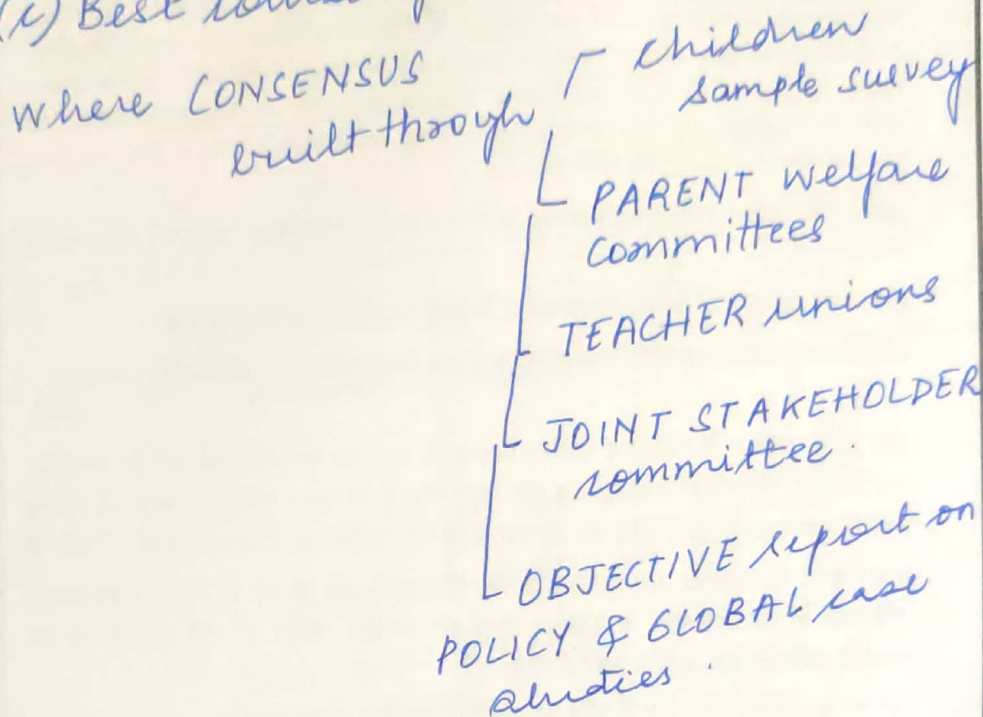 (c) Best
Where CONSENSUS
built through
Children
sample survey
PARENT welfare
Committees
TEACHER unions
JOINT STAKEHOLDER
committee.
OBJECTIVE report on
POLICY & GLOBAL case
studies.